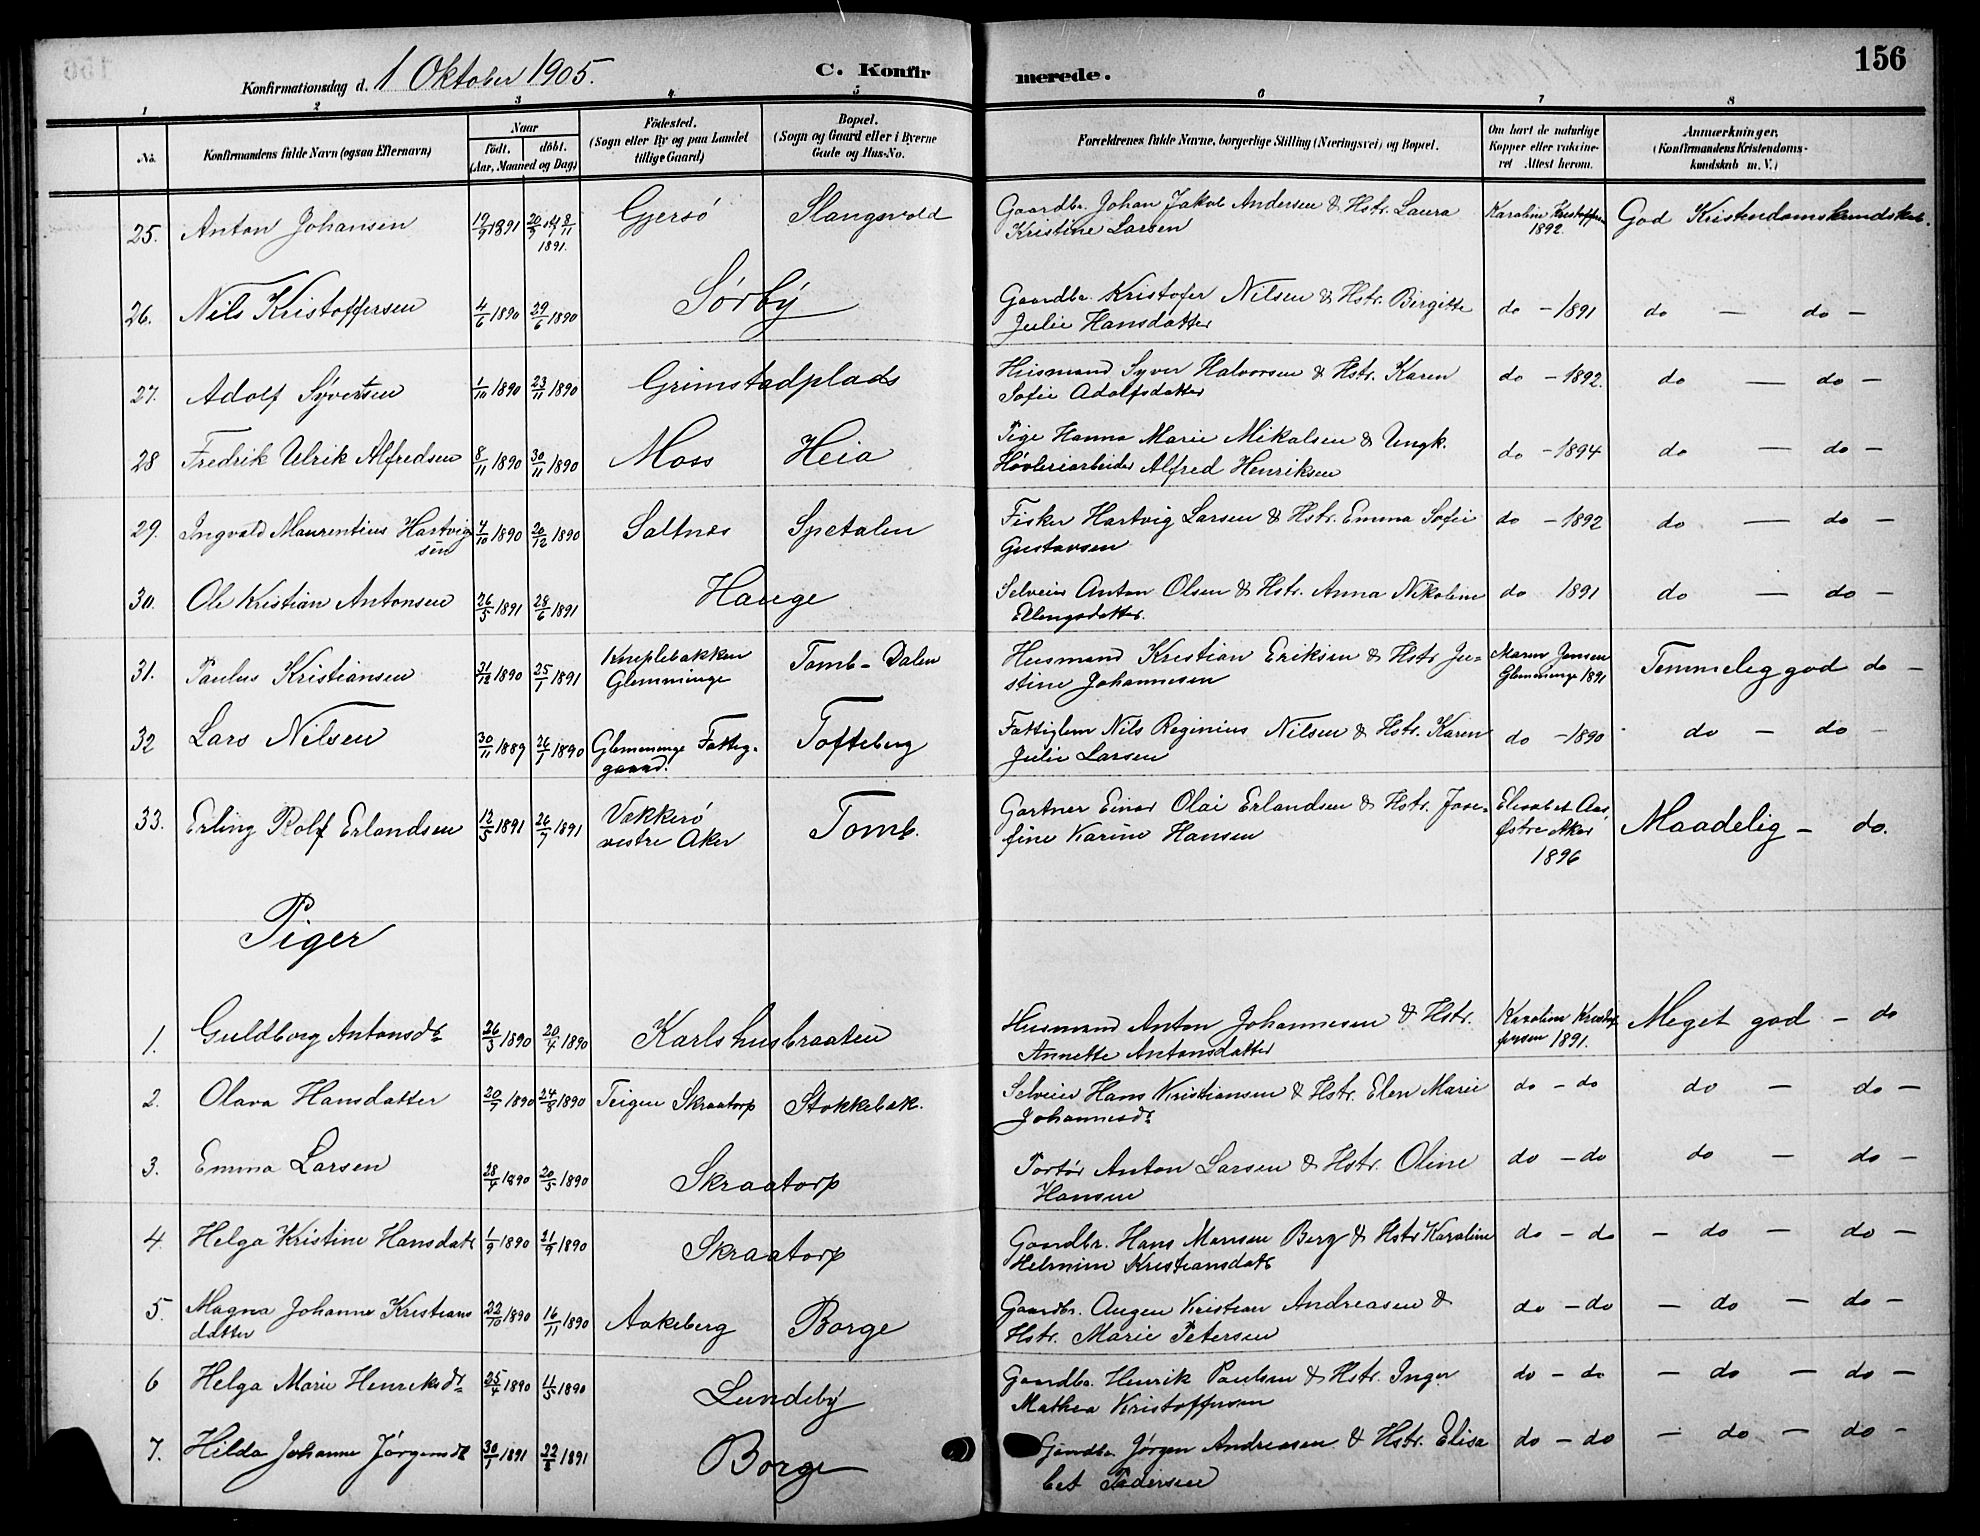 156
Konfirmationsdag d. 1 Oktober 1905.
C. Konfirmerede.
1 2 3 4 5 6 7 8
No.
Konfirmandens fulde Navn (ogsaa Efternavn)
Naar
födt. döbt.
(Aar, Maaned og Dag)
Födested.
(Sogn eller By og paa Landet
tillige Gaard)
Bopæl.
(Sogn og Gaard eller i Byerne
Gade og Hus-No.
Forældrenes fulde Navne, borgerlige Stilling (Næringsvei) og Bopæl.
Om havt de naturlige
Kopper eller vaccine-
ret Attest herom.
Anmærkninger.
(Konfirmandens Kristendoms-
kundskab m. V.)
25. Anton Johansen 19/9 1891 20/9 8/11 1891. Gjersö Slangsvold Gaardbr. Johan Jakob Andersen & Hstr. Laura
Kristine Larsen Karoline Kristoffersen 1892. God Kristendomskundskab.
26. Nils Kristoffersen 4/6 1890 29/6 1890 Sörby Gaardbr. Kristofer Nilsen & Hstr. Birgitte
Julie Hansdatter do - 1891 do — do —
27. Adolf Syvertsen 1/10 1890 23/11 1890 Grimstadplads Husmand Syver Halvorsen & Hstr. Karen
Sofie Adolfsdatter do - 1892. do — do —
28 Fredrik Ulrik Alfredsen 8/11 1890 30/11 1890 Moss Heia Pige Hanna Marie Mikalsen & Ungk.
Hövleriarbeider Alfred Henriksen do - 1894 do — do —
29. Ingvald Maurentius Hartvig
sen 4/10 1890 20/12 1890 Saltnes Spetalen Fisker Hartvig Larsen & Hstr. Emma Sofie
Gustavsen do - 1892 do — do —
30. Ole Kristian Antonsen 26/5 1891 28/6 1891 Hauge Selveier Anton Olsen & Hstr. Anna Nikoline
Ellingsdatter. do 1891 do — do —
31. Paulus Kristiansen 31/12 1890 25/1 1891 Kneplebakken
Glemminge Tomb - Dalen Husmand Kristian Eriksen & Hstr Ju-
stine Johannesen Maren Jensen
Glemminge 1891 Temmelig god do —
32 Lars Nilsen 30/11 1889 26/1 1890 Glemminge Fattig-
gaard. Tofteberg Fattiglem Nils Reginius Nilsen & Hstr. Karen
Julie Larsen do - 1890 do — do —
33. Erling Rolf Erlandsen 12/5 1891 26/7 1891 Vækkerö
vestre Aker Tomb. Gartner Einar Olai Erlandsen & Hstr. Jose-
fine Karine Hansen Elisabet Aas,
Østre Aker
1896 Maadelig — do.
Piger
1. Guldborg Antonsdr 26/3 1890 20/4 1890 Karlshusbraaten Husmand Anton Johannesen & Hstr.
Annette Antonsdatter Karoline Kristof
fersen 1891. Meget god — do
2. Olava Hansdatter 20/7 1890 24/8 1890 Teigen Skraatorp Stokkebæk. Selveier Hans Kristiansen & Hstr. Elen Marie
Johannesdr do - do do — do —
3. Emma Larsen 28/4 1890 20/5 1890 Skraatorp Portör Anton Larsen & Hstr. Oline
Hansen do - do do — do —
4. Helga Kristine Hansdatr 1/9 1890 21/9 1890 Skraatorp Gaardbr. Hans Mansen Berg & Hstr Karoline
Helmine Kristiansdatr do - do — do — do —
5. Magna Johanne Kristians
datter 22/10 1890 16/11 1890 Aakeberg Borge Gaardbr. Augen Kristian Andreasen &
Hstr. Marie Petersen do - do — do — do —
6 Helga Marie Henriksdr 25/4 1890 11/5 1890 Lundeby Gaardbr. Henrik Paulsen & Hstr. Inger
Mathea Kristoffersen do - do — do — do —
7. Hilda Johanne Jörgensdr 30/1 1891 22/2 1891 Borge Gaardbr. Jörgen Andreasen & Hstr. Elisa
bet Pedersen do - do — do — do —